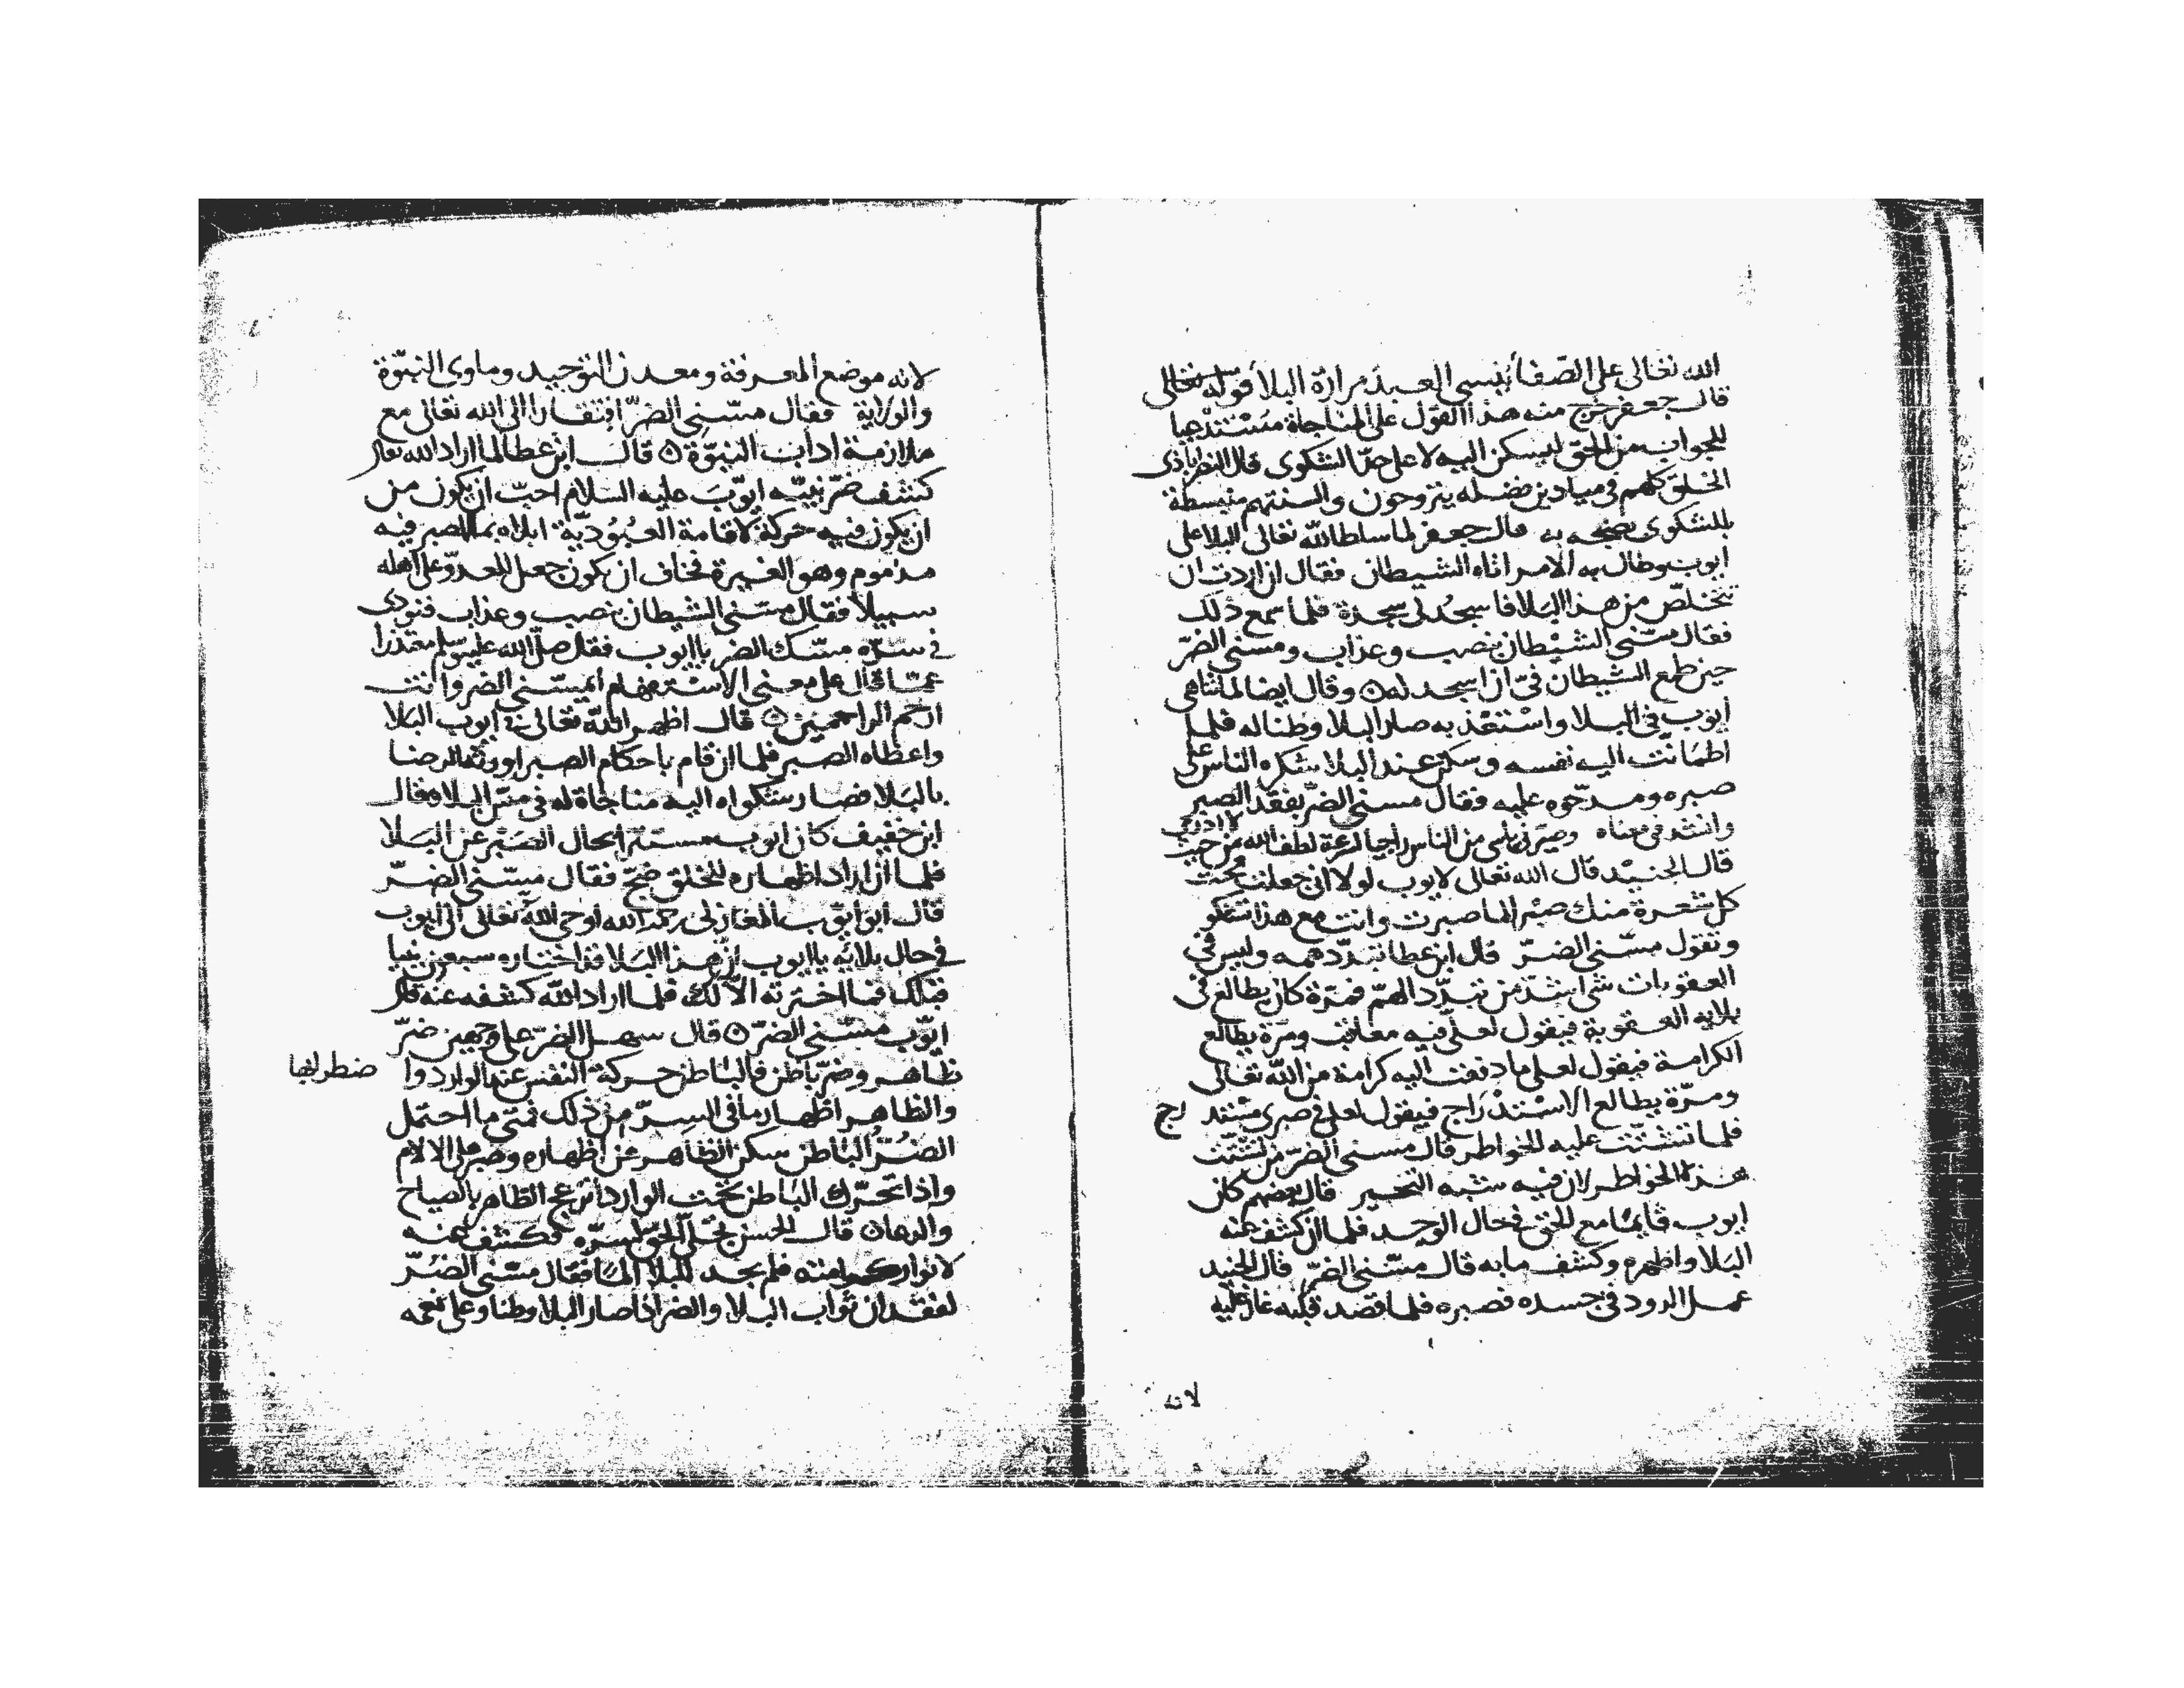 الله تعالى على الصفا أينسى العبد مرارة البلا قوله تعالى
قال جعفر خرج منه هذا القول على المناجاة مستدعيا
للجواب من الحق ليسكن اليه لا على حد الشكوى قال النصراباذى
الخلق كلهم فى ميادين فضله يتروحون والسنتهم منبسطة
بالشكوى به قال جعفر لما سلط الله تعالى البلا على
ايوب وطال به الامر اتاه الشيطان فقال ان اردت ان
تتخلص من هذا البلا فاسجد لى سجدة فلما سمع ذلك
فقال مسنى الشيطان بنصب وعذاب ومسنى الضر
حين طمع الشيطان فىّ ان اسجد له ۞ وقال ايضا لما تناهى
ايوب فى البلا واستعذبه صار البلا وطنا له فلما
اطمانت اليه نفسه وسكن عند البلا شكره الناس على
صبره ومدحوه عليه فقال مسنى الضر بفقد الصبر
وانشد فى معناه من الناس راجيا لطف الله من حيث لا ادرى
قال الجنيد قال الله تعالى لايوب لولا انى جعلت تحت
كل شعرة منك صبرا لما صبرت وانت مع هذا تشكو
وتقول مسنى الضر قال ابن عطا تبدد همه وليس فى
العقوبات شى اشد من تبدد الهم فمرة كان يطالع فى
بلايه العقوبة فيقول لعلى فيه معاقب ومرة يطالع
الكرامة فيقول لعلى ما دفعت اليه كرامة من الله تعالى
ومرة يطالع الاستدراج فيقول لعلى فى صبرى مستد رج
فلما تشتت عليه الخواطر قال مسنى الضر من تشتت
هذه الخواطر لان فيه شبه التحير قال بعضهم كان
ايوب قايما مع الحق فى حال الوجد فلما ان كشف عنه
البلا واظهره وكشف ما به قال مسنى الضر قال الجنيد
عمل الدود فى جسده فصبره فلما قصد قلبه غار عليه
لانه
لانه موضع المعرفة ومعدن التوحيد وماوى النبوة
والولاية فقال مسنى الضر افتقارا الى الله تعالى مع
ملازمة اداب النبوة ۞ قال ابن عطا لما اراد الله تعالى
كشف ضر نبيه ايوب عليه السلام احب ان يكون من
ان يكون فيه حركة لاقامة العبودية ابلاه بما الصبر فيه
مذموم وهو الغيرة فخاف ان يكون جعل للعدو على اهله
سبيلا فقال مسنى الشيطان بنصب وعذاب فنودى
فى سره مسك الضر يا ايوب فقال صلى الله عليه وسلم معتذرا
عما قال على معنى الاستفهام أيمسنى الضر وانت
ارحم الراحمين ۞ قال اظهر الله تعالى فى ايوب البلا
واعطاه الصبر فلما ان قام باحكام الصبر اورثه الرضا
بالبلا فصار شكواه اليه مناجاة له فى البلا ۞ قال
ابن خفيف كان ايوب مستترا بحال الصبر عن البلا
فلما ان اراد اظهاره للخلق ضج فقال مسنى الضر
قال ابو ايوب المغازلى رحمه الله اوحى الله تعالى الى ايوب
فى حال بلائه يا ايوب ان هذا البلا قد اختاره سبعون نبيا
قبلك فما اخترته الا لك فلما اراد الله كشفه عنه قال
ايوب مسنى الضر ۞ قال سهل الضر على وجهين ضر
ظاهر وضر باطن فالباطن حركة النفس عند الوارد وا ضطرابها
والظاهر اظهار ما فى السر من ذلك فمتى ما احتمل
الضر الباطن سكن الظاهر عن اظهاره وصبر على الالام
واذا تحرك الباطن تحت الوارد انزعج الظاهر بالصياح
قال الحسن تجلى الحق لسره فكشف عنه
لانوار فلم يجد للبلا الما فقال مسنى الضر
لفقدان ثواب البلا والضر اذا صار البلا وطنا وعلى نعمه